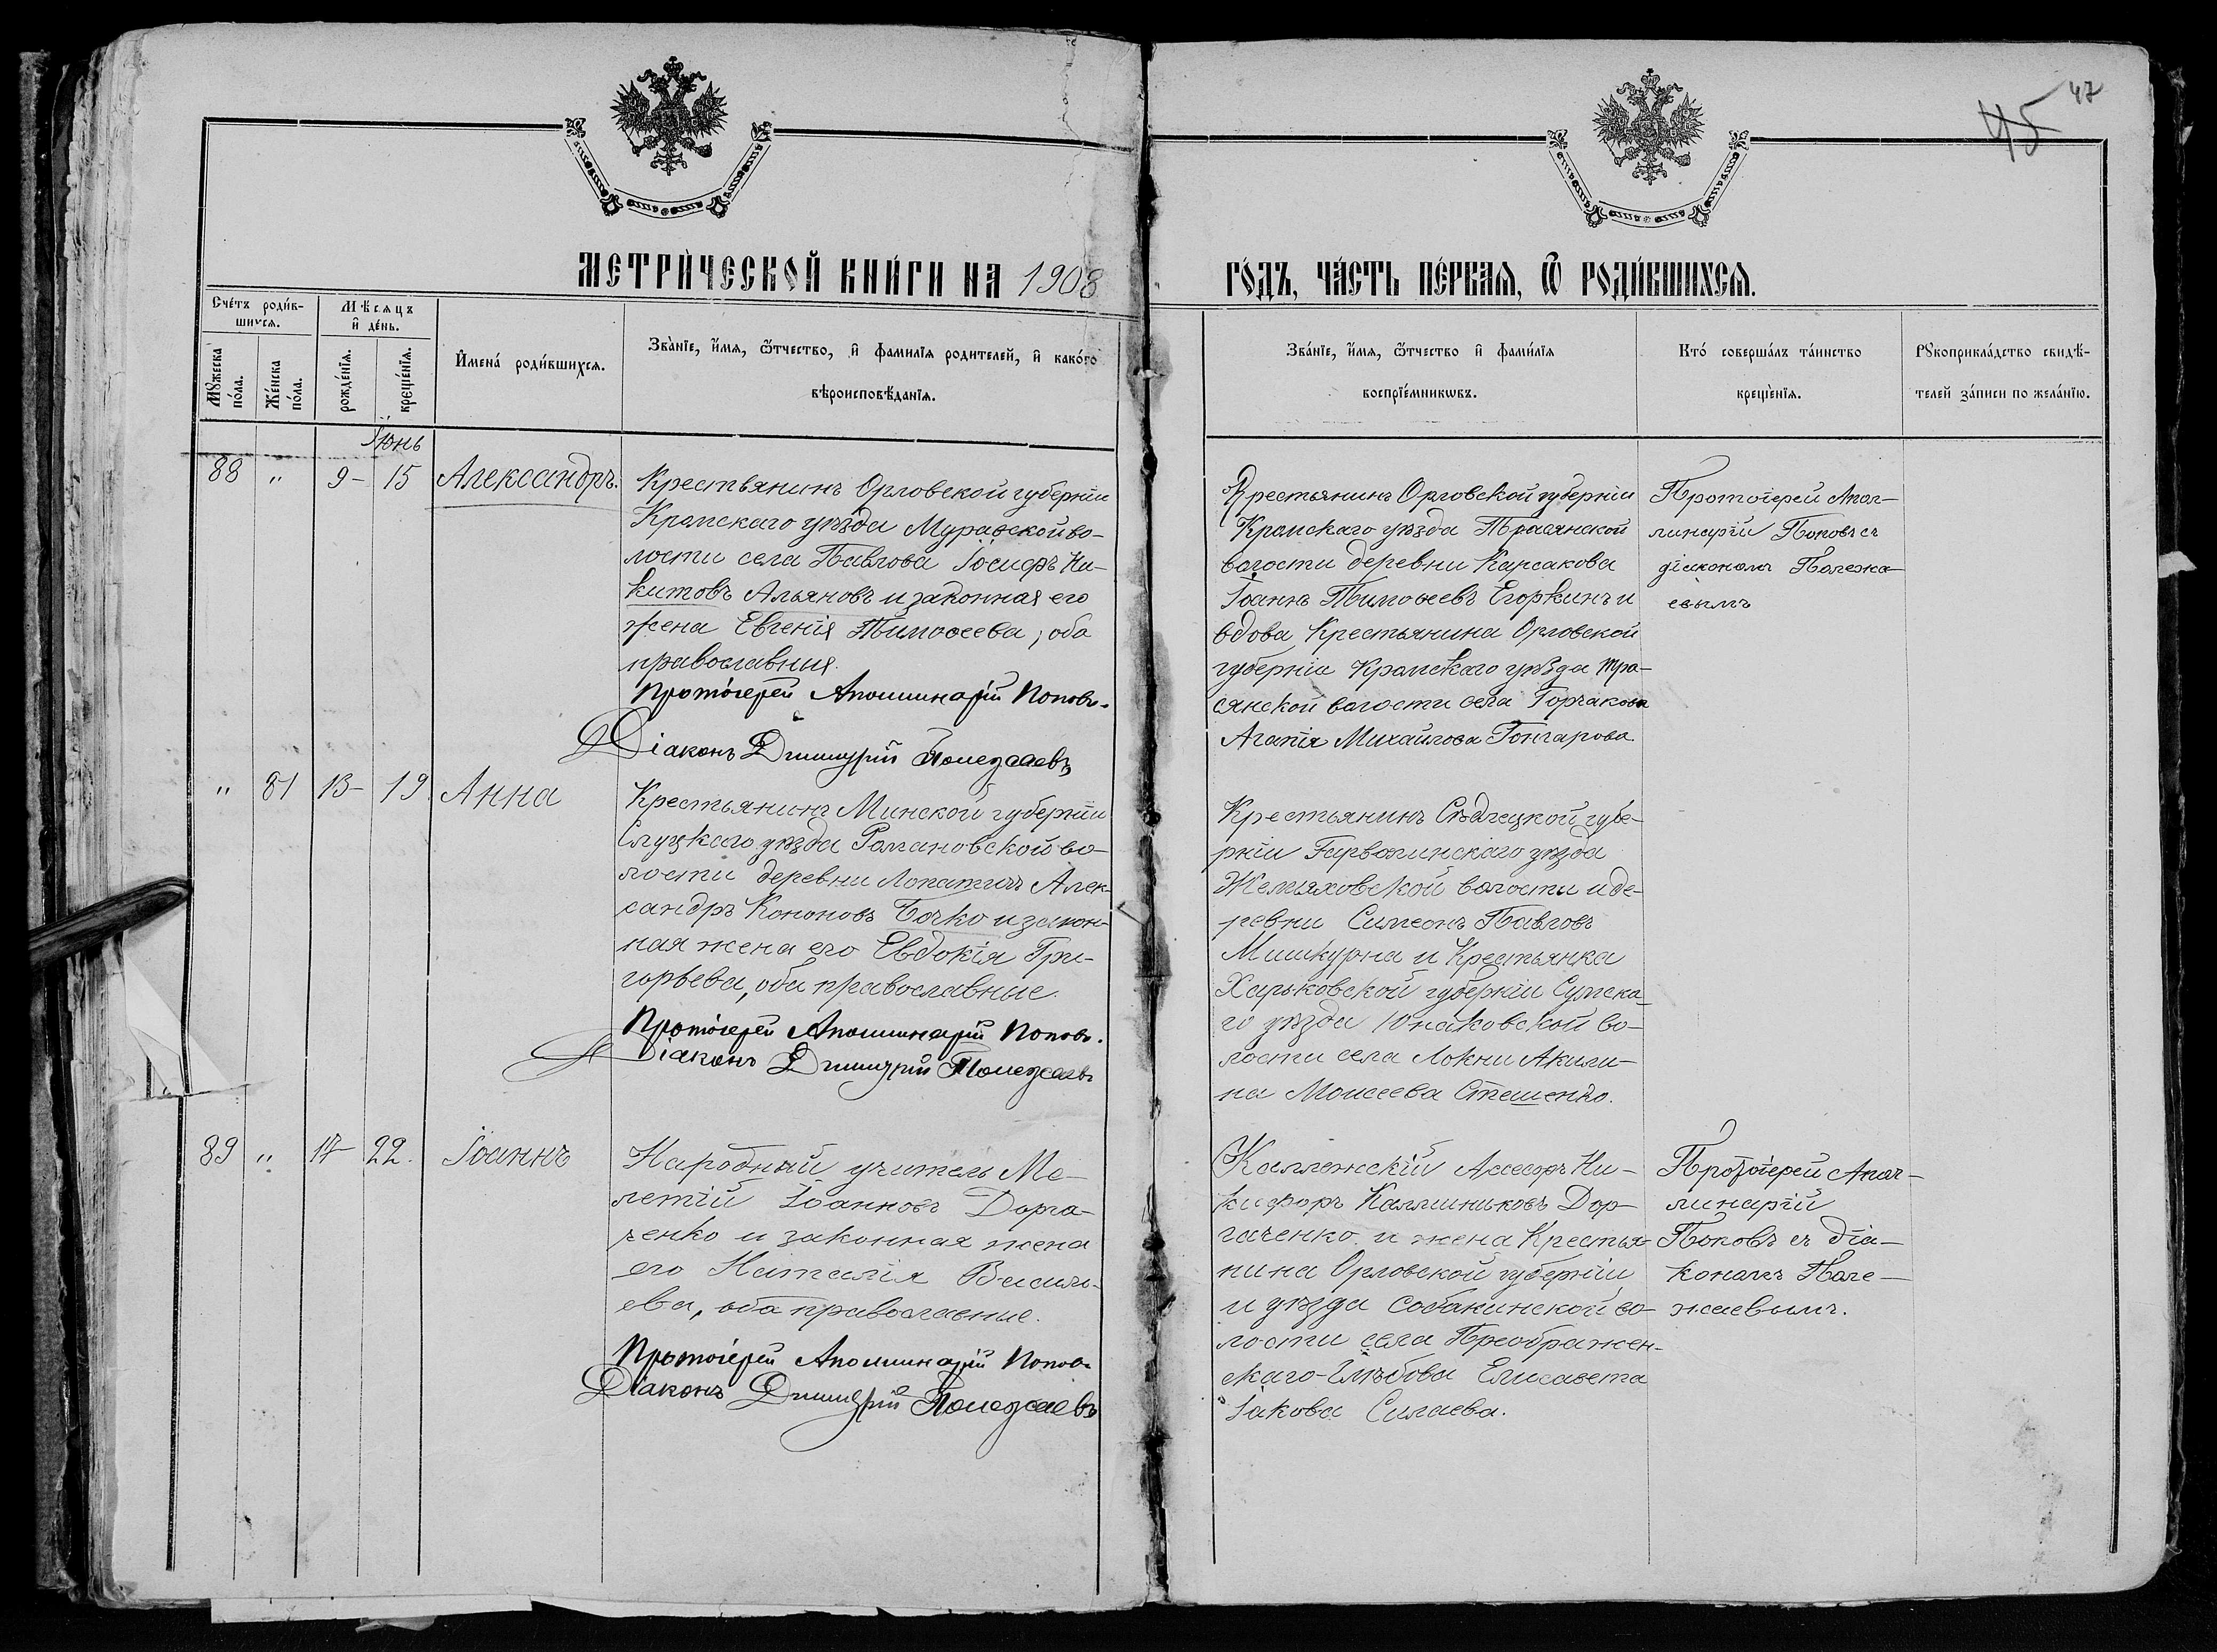 45 47
МЕТРИ́ЧЕСКОЙ КНИ́ГИ НА 1908
ГО́ДЪ, ЧА́СТЬ ПЕ́РВАѦ, Ѿ РОДИ́ВШИХСѦ.
Сче́тъ роди́в-
шихсѧ.
Мѣсѧцъ
и҆ де́нь.
Мꙋжеска
по́ла.
Же́нска
по́ла.
рожде́нїѧ.
креще́нїѧ.
И҆мена́ роди́вшихсѧ.
Зва́нїе, и҆́мѧ, ѻ҆́тчество, и҆ фамилїѧ родителей, и҆ како́гѡ
вѣроисповѣ́данїѧ.
Зва́нїе, и҆́мѧ, ѻ҆́тчество и҆ фами́лїѧ
воспрїе́мникѡвъ.
Кто́ соверша́лъ та́инство
креще́нїѧ.
Рꙋкоприкла́дство свидѣ́-
телей за́писи по жела́нїю.
Іюнь
88 " 9- 15 Александръ.
Крестьянинъ Орловской губерніи
Кромскаго уѣзда Муравской во-
лости села Павлова Іосифъ Ни-
китовъ Альяновъ и законная его
жена Евгенія Тимоѳеева, оба
православныя.
Протоіерей Аполлинарій Поповъ.
Діаконъ Димитрій Полежаевъ
Крестьянинъ Орловской губерніи
Кромскаго уѣзда Трасянской
волости деревни Карсакова
Іоаннъ Тимоѳеевъ Егоркинъ и
вдова Крестьянина Орловской
губерніи Кромскаго уѣзда Тра-
сянской волости села Горчакова
Агапія Михайлова Гончарова.
Протоіерей Апол-
линарій Поповъ съ
діакономъ Полежа-
евымъ
" 81 13- 19. Анна
Крестьянинъ Минской губерніи
Слуцкаго уѣзда Романовской во-
лости деревни Лопатичъ Алек-
сандръ Кононовъ Бочко и закон-
ная жена его Евдокія Гри-
горьева, оба православные.
Протоіерей Аполлинарій Поповъ.
Діаконъ Димитрій Полежаевъ
Крестьянинъ Сѣдлецкой губе-
рніи Гарволинскаго уѣзда
Желяховской волости и де-
ревни Симеонъ Павловъ
Мишкурна и Крестьянка
Харьковской губерніи Сумска-
го уѣзда Юнаковской во-
лости села Локни Акили-
на Моисеева Стешенко.
89 " 17- 22. Іоаннъ
Народный учитель Ме-
летій Іоанновъ Дорга-
ченко и законная жена
его Наталія Василь-
ева, оба православные.
Протоіерей Аполлинарій Поповъ
Діаконъ Димитрій Полежаевъ
Коллежскій Ассесоръ Ни-
кифоръ Каллиниковъ Дор-
гаченко и жена Крестья-
нина Орловской губерніи
и уѣзда Собакинской во-
лости села Преображен-
скаго-Глѣбова Елисавета
Іакова Силаева.
Протоіерей Апол-
линарій
Поповъ съ діа-
кономъ Поле-
жаевымъ.